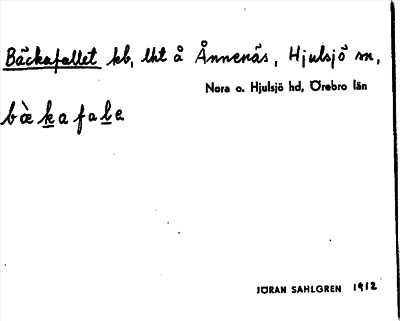 Bäckafallet kb, lht å Ånnenäs, Hjulsjö sn,
Nora o. Hjulsjö hd, Örebro län
bàkafale
JÖRAN SAHLGREN 1912